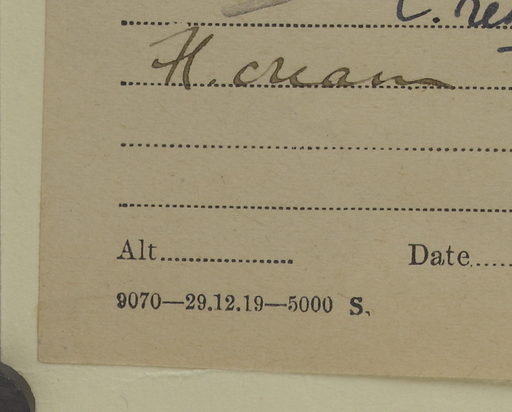 H. cream
Alt.................... Date.....
9070—29.12.19—5000 S.